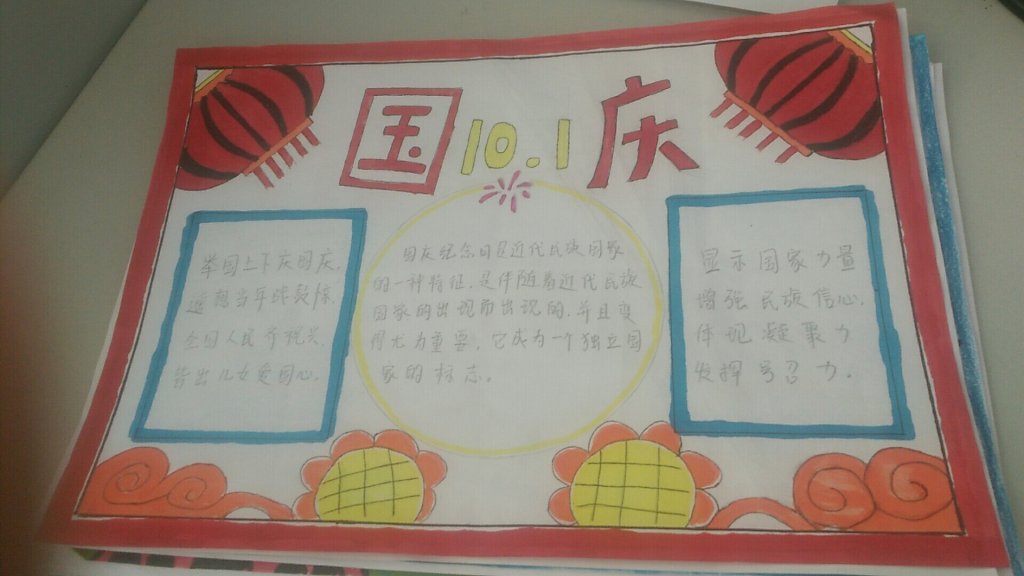 国10.1庆
举国上下庆国庆,
遥想当年战鼓惊,
全国人民齐祝兴,
皆出儿女爱国心.
国庆纪念日是近代民族国家
的一种特征,是伴随着近代民族
国家的出现而出现的,并且变
得尤为重要。它成为一个独立国
家的标志。
显示国家力量
增强民族信心,
体现凝聚力
发挥号召力。